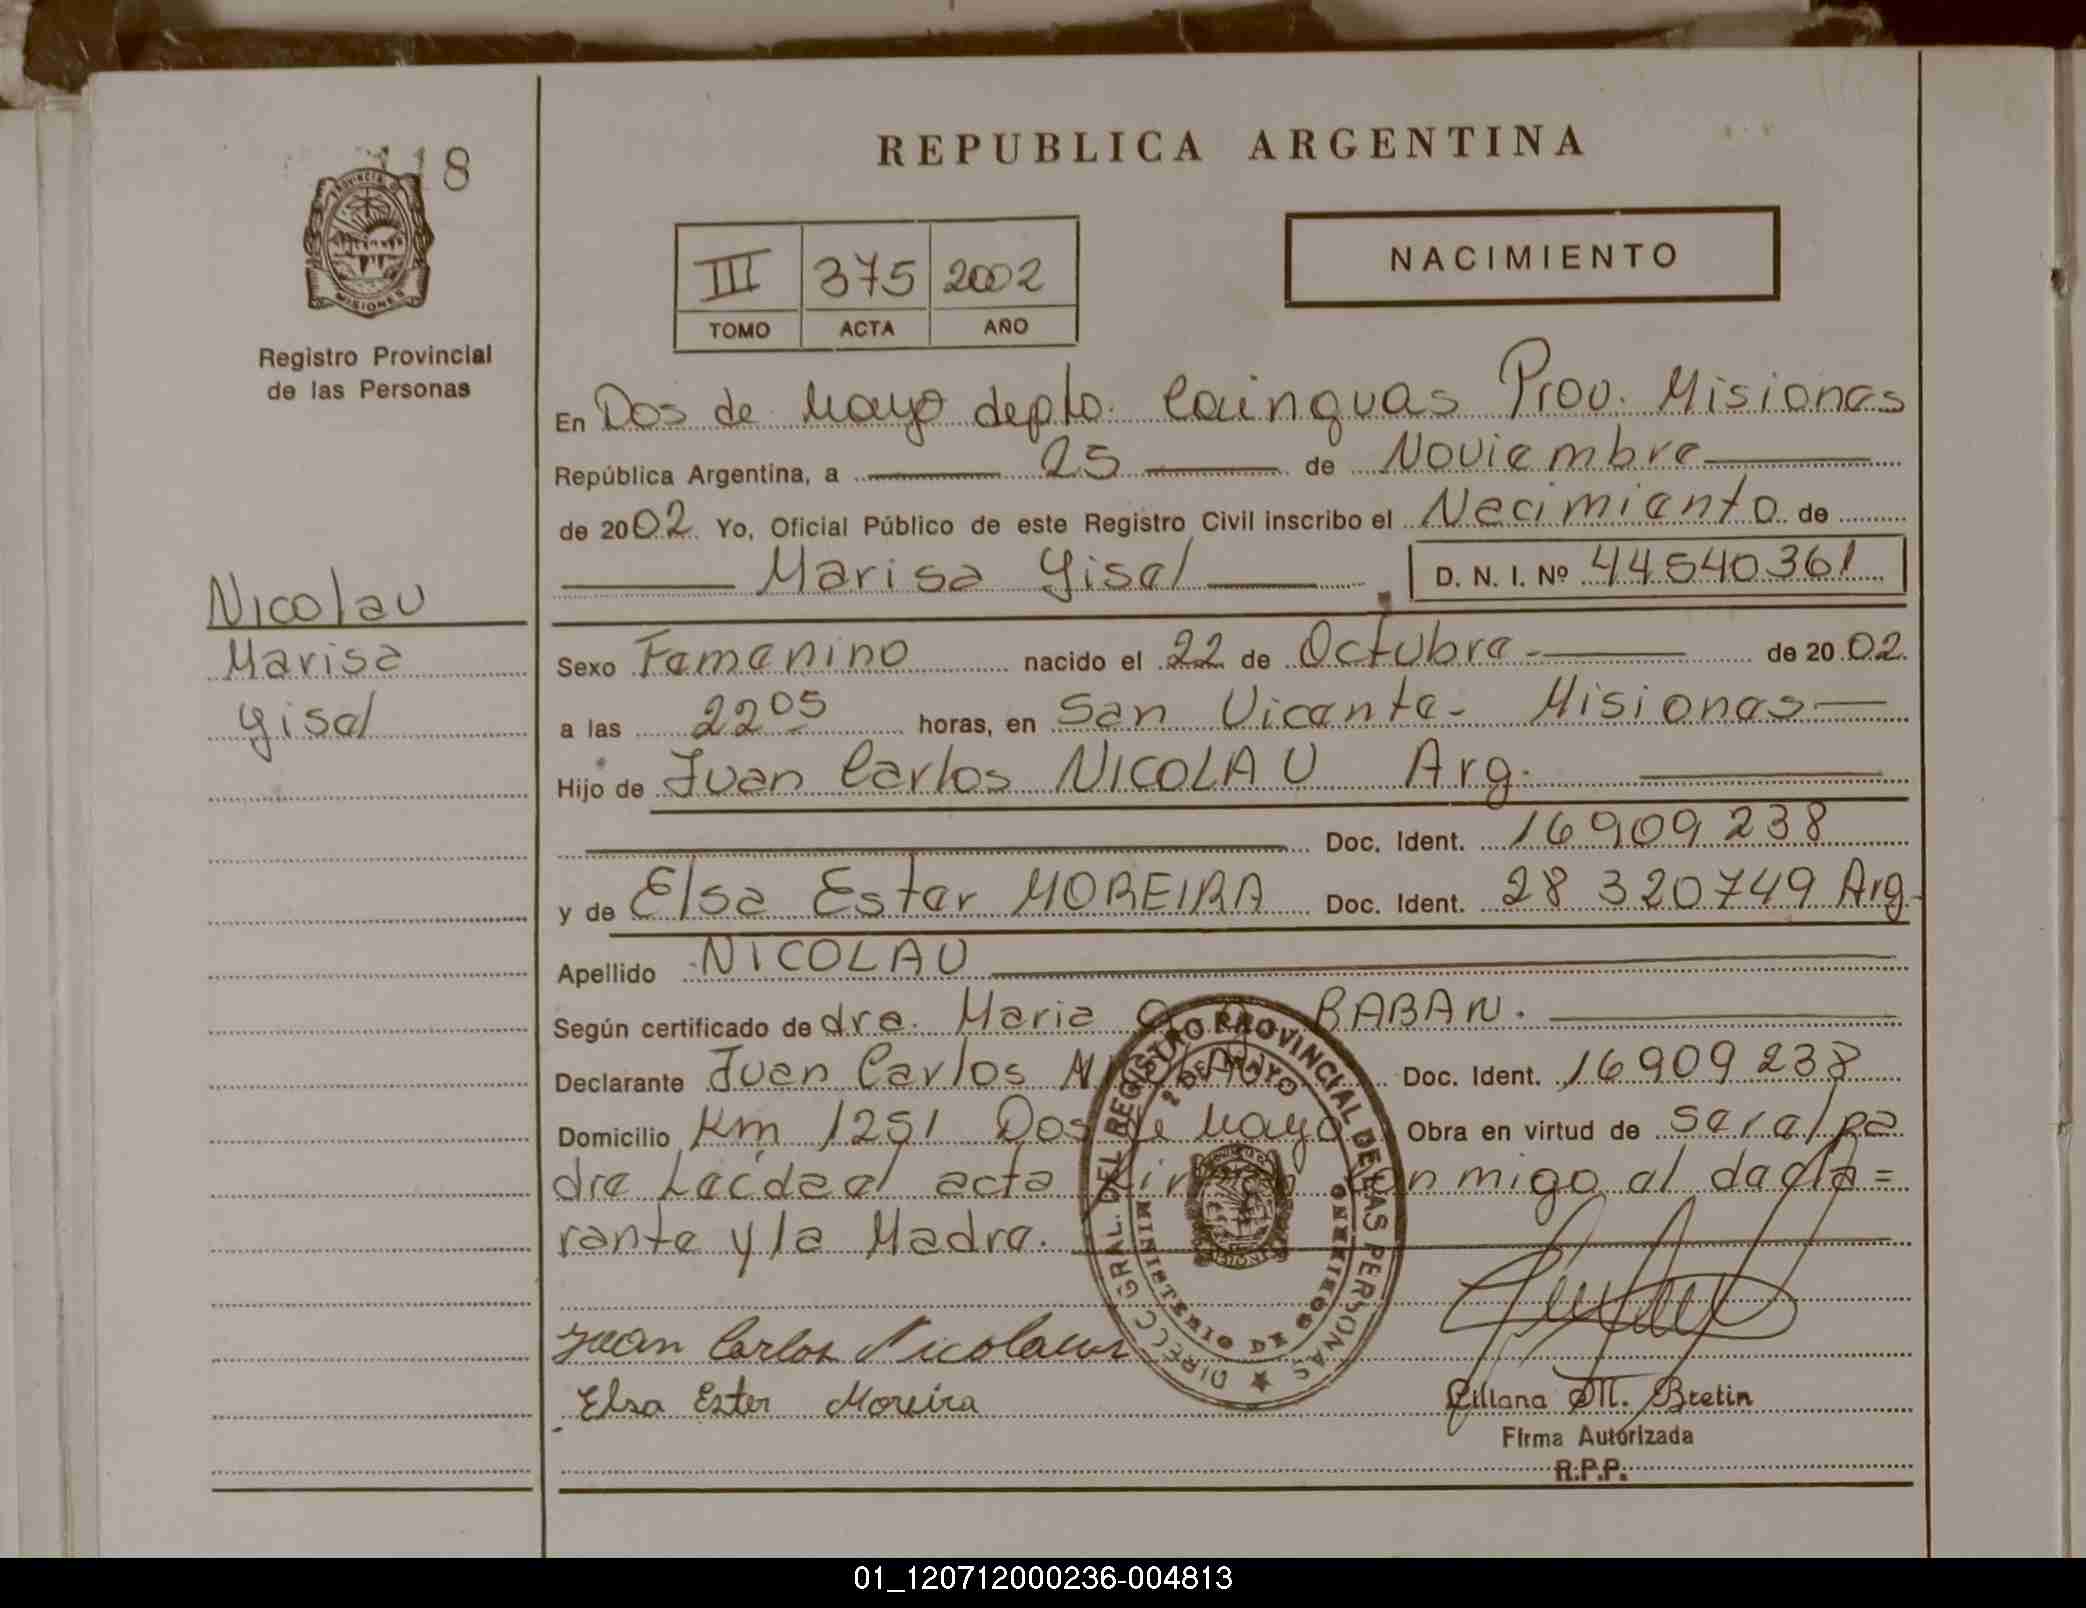 118
PROVINCIA DE
MISIONES
Registro Provincial
de las Personas
REPUBLICA ARGENTINA
III 375 2002
TOMO ACTA AÑO
NACIMIENTO
En Dos de Mayo depto. Cainguas Prov. Misiones
República Argentina, a 25 de Noviembre
de 2002 Yo, Oficial Público de este Registro Civil inscribo el Nacimiento de
Marisa Gisel D. N. I. Nº 44540361
Nicolau
Marisa
Gisel
Sexo Femenino nacido el 22 de Octubre de 2002
a las 22 05 horas, en San Vicente - Misiones
Hijo de Juan Carlos NICOLAU Arg.
Doc. Ident. 16909238
y de Elsa Ester MOREIRA Doc. Ident. 28 320749 Arg.
Apellido NICOLAU
Según certificado de dra. Maria BABAN.
Declarante Juan Carlos NICOLAU Doc. Ident. 16909238
Domicilio Km 1251 Dos de Mayo Obra en virtud de ser el pa
dre Leída el acta conmigo el decla=
rante y la Madre.
DIRECC. GRAL. DEL REGISTRO PROVINCIAL DE LAS PERSONAS
2 DE MAYO
MINISTERIO DE GOBIERNO
Juan Carlos Nicolau
Elsa Ester Moreira
Liliana M. Bretin
Firma Autorizada
R.P.P.
01_120712000236-004813